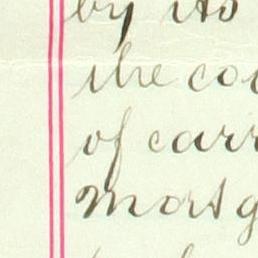 by its
the co
of carr
mortg